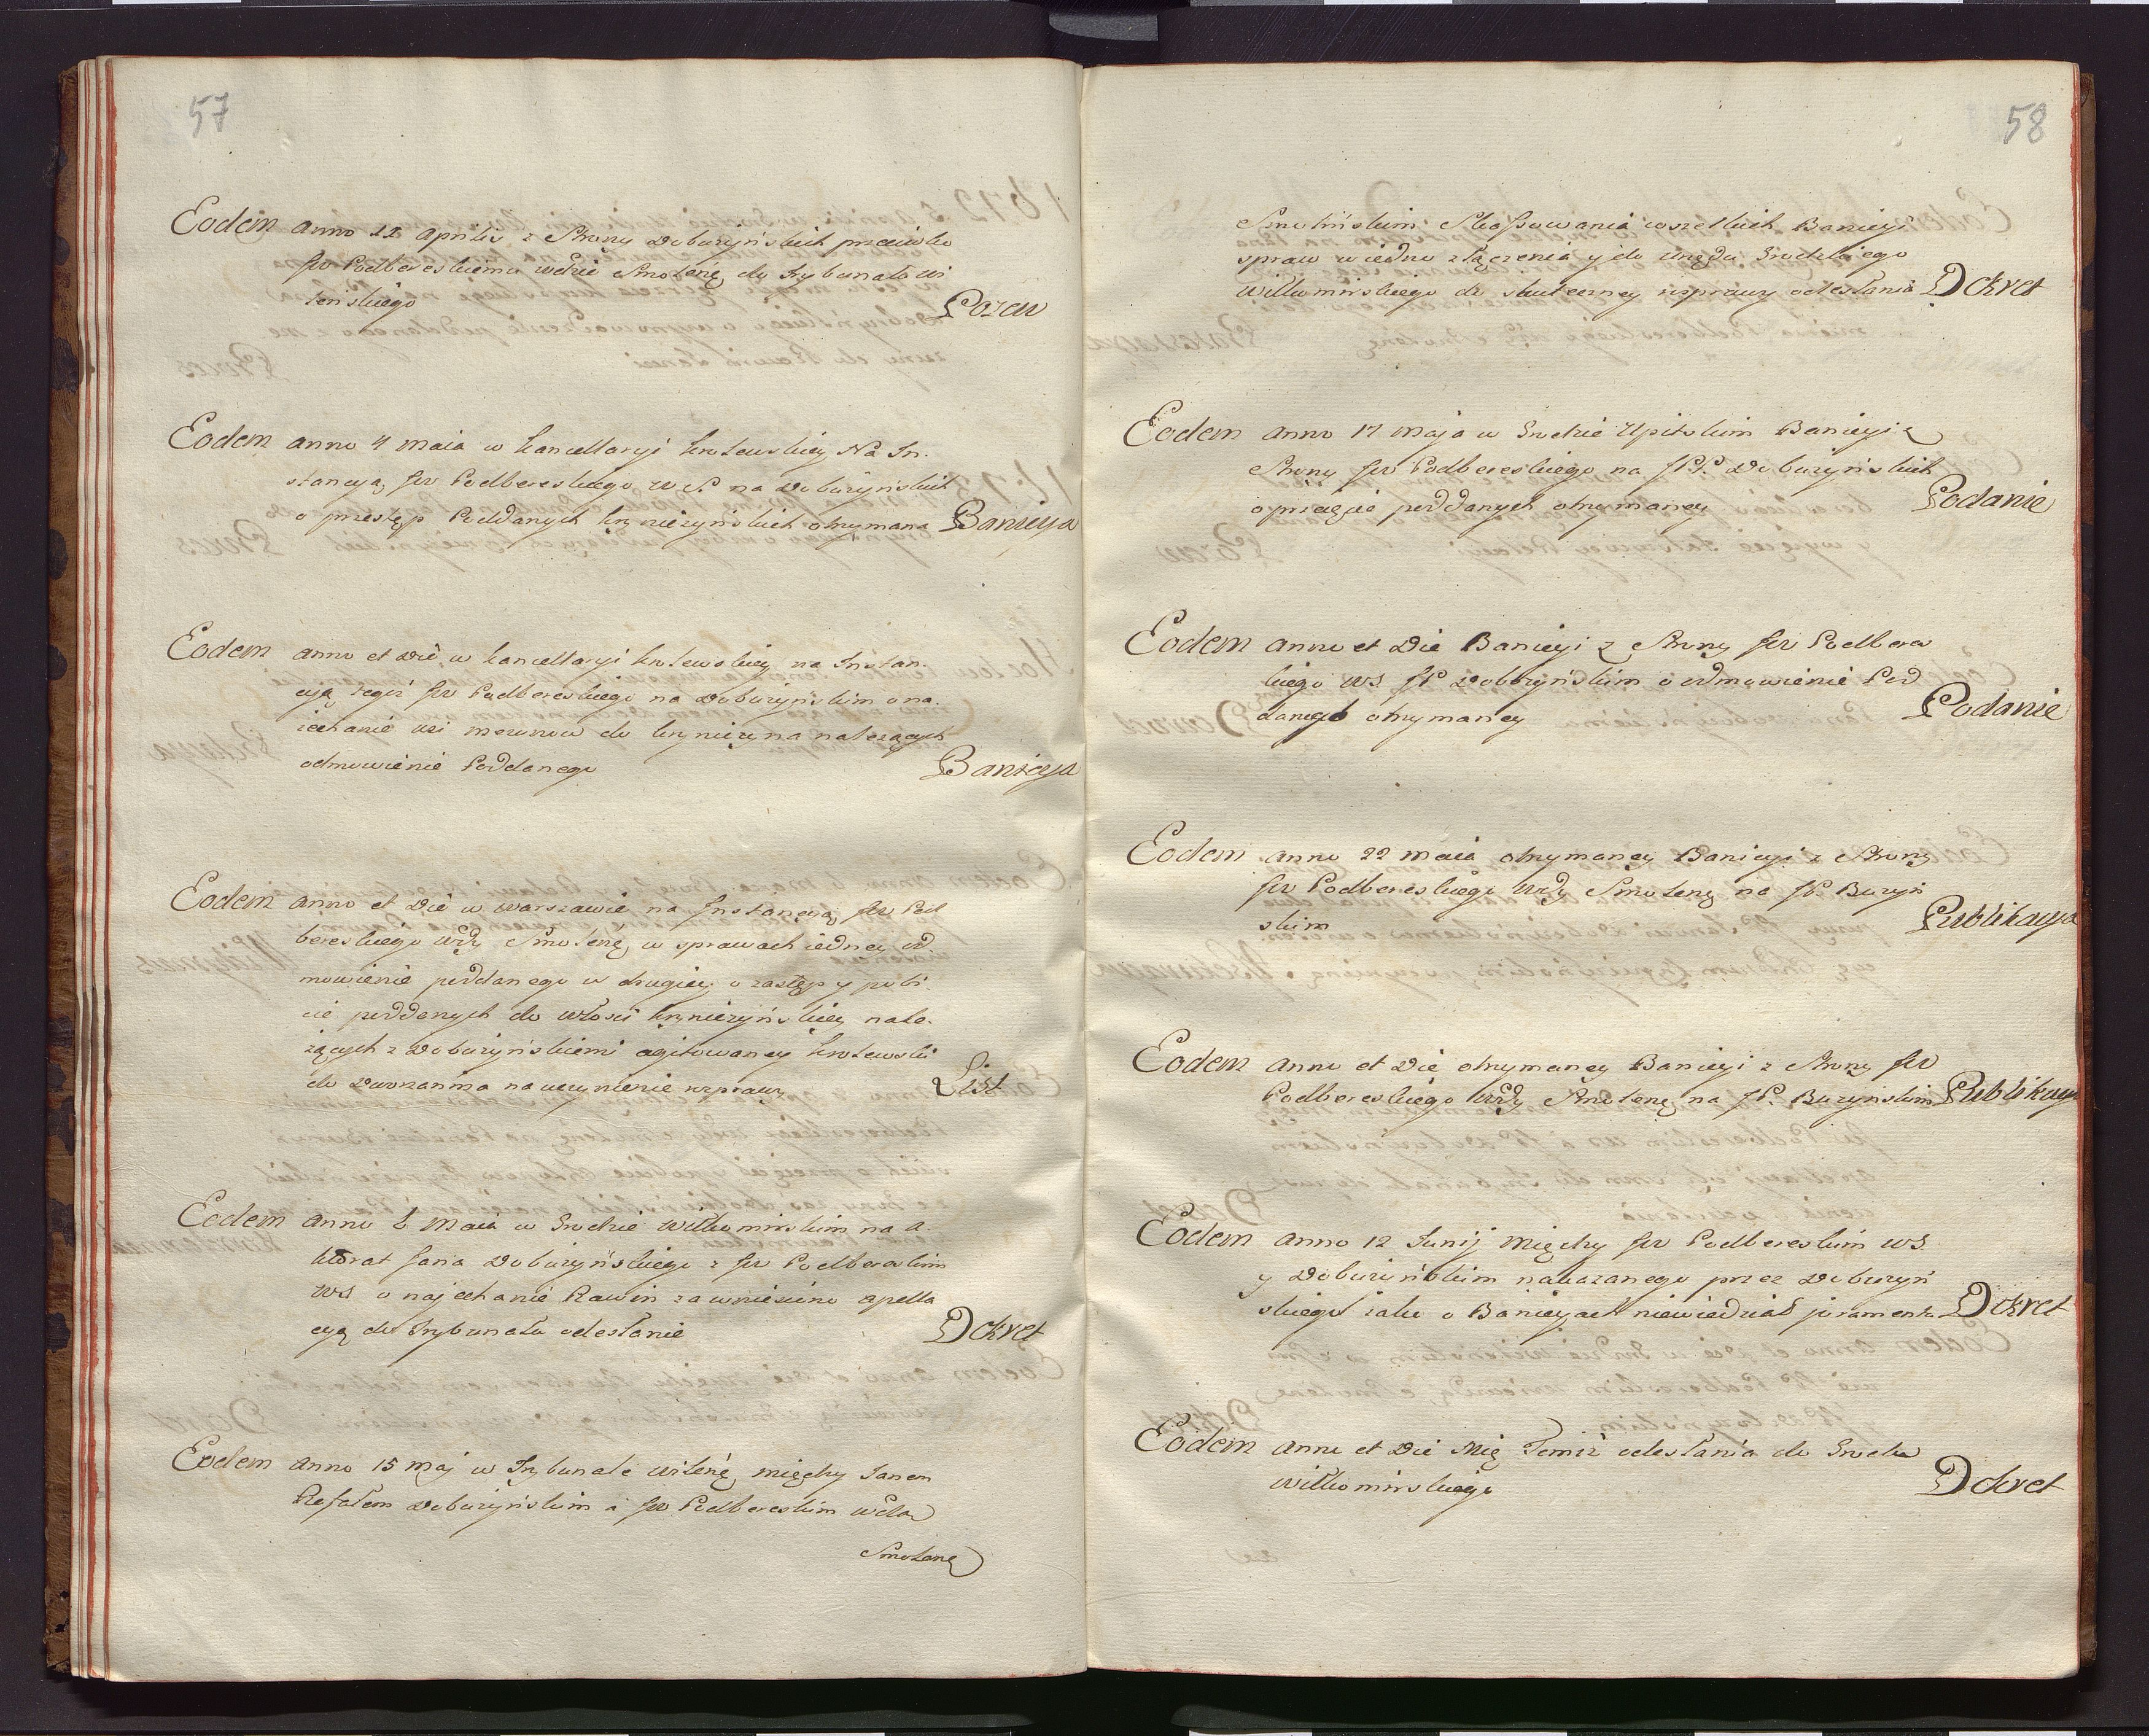 57
Eodem anno 22 Aprilis z Strony Doburzyńskich przeciwko
JW Podbereskiemu wdzie Smoleńę do Trybunału Wi
leńskiego Pozew
Eodem anno 4 Maia w Kancellaryi Krolewskiey Na In-
stancyą JW Podbereskiego W S. na Doburzyńskich
o przestęp Poddanych Kryniczyńskich otrzymana Banicya
Eodem anno et Die w Kancellaryi Krolewskiey na Instan-
cyą tegoż JW Podbereskiego na Doburzyńskim o na-
iechanie wsi Merunow do Kryniczyna należących
odmowienie Poddanego Banicya
Eodem anno et Die w Warszawie na Instancyą JW Pod
bereskiego Wdy Smoleńę w sprawach iedney od-
mowienie poddanego w drugiey o zastęp y pobi-
cie poddanych do Włości Kryniczyńskiey nale-
żących z Doburzyńskiemi agitowaney Krolewski
do Dworzanina na uczynienie rozprawy List
Eodem anno 6 Maia w Grodzie Wiłkomirskim na a-
ktorat Jana Doburzyńskiego z JW Podbereskim
WS o najechanie Rawin za wniesieniem apella
cyą do Trybunału odesłanie Dekret
Eodem anno 15 Maj w Trybunale Wileńę między Janem
Refałem Doburzyńskim a JW Podbereskim wdą
Smoleńę
58
Smoleńskim Skassowania wszelkich Banicyi
spraw w iedno złączenia y do Urzędu Grodzkiego
Wiłkomirskiego do skuteczney rosprawy odesłania Dekret
Eodem anno 17 Maja w Grodzie Upitskim Banicyi z
Strony JW Podbereskiego na JPP. Doburzyńskich
o przeięcie poddanych otrzymaney Podanie
Eodem anno et Die Banicyi z Strony JW Podberes
kiego WS. JP Doburzyńskim o odmowienie Pod
danego otrzymaney Podanie
Eodem anno 22 Maia otrzymaney Banicyi z Strony
JW Podbereskiego Wdy Smoleńę na JP. Burzyń
skim Publikacya
Eodem anno et Die otrzymaney Banicyi z Strony JW
Podbereskiego Wdy Smoleńę na JP. Burzyńskim Publikacya
Eodem anno 12 Junij między JW Podbereskim WS.
y Doburzyńskim nakazanego przez Doburzyń
skiego iako o Banicyach niewiedział juramentu Dekret
Eodem anno et Die Mię Temiż odesłania do Grodu
Wiłkomirskiego Dekret